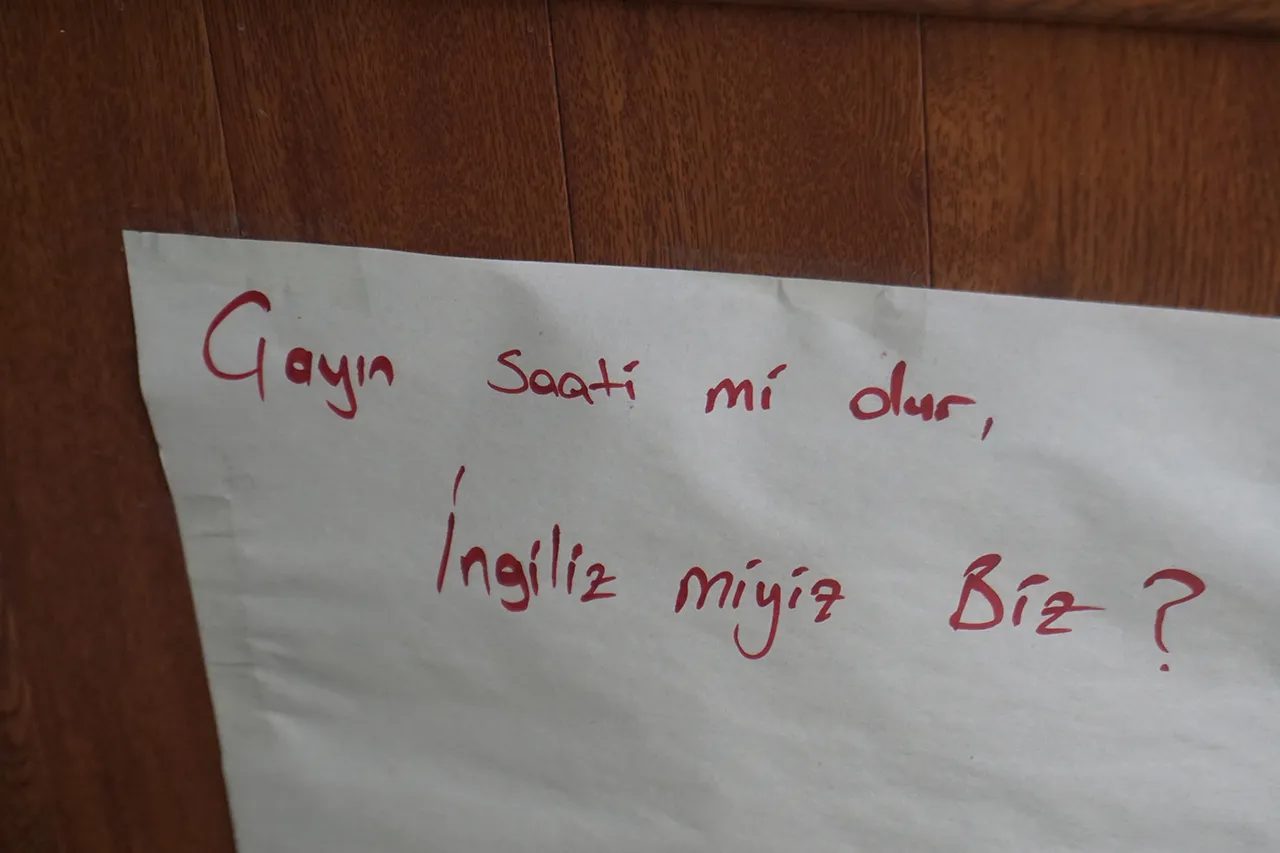 Çayın saati mi olur,
İngiliz miyiz Biz?